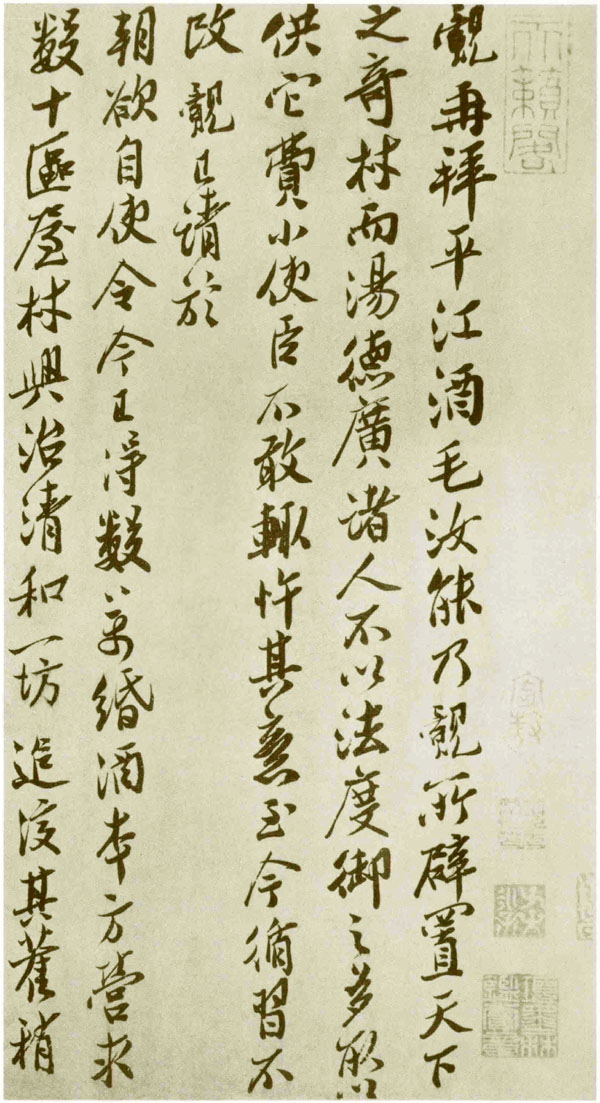 天籟閣
覿再拜平江酒毛汝能乃覿所辟置天下
之奇材而湯德廣諸人不以法度御之多取以
供它費小使臣不敢輒忤其意至今循習不
改覿已請於
朝欲自使令今已得數萬緡酒本方營求
數十區屋材興治清和一坊追復其舊稍